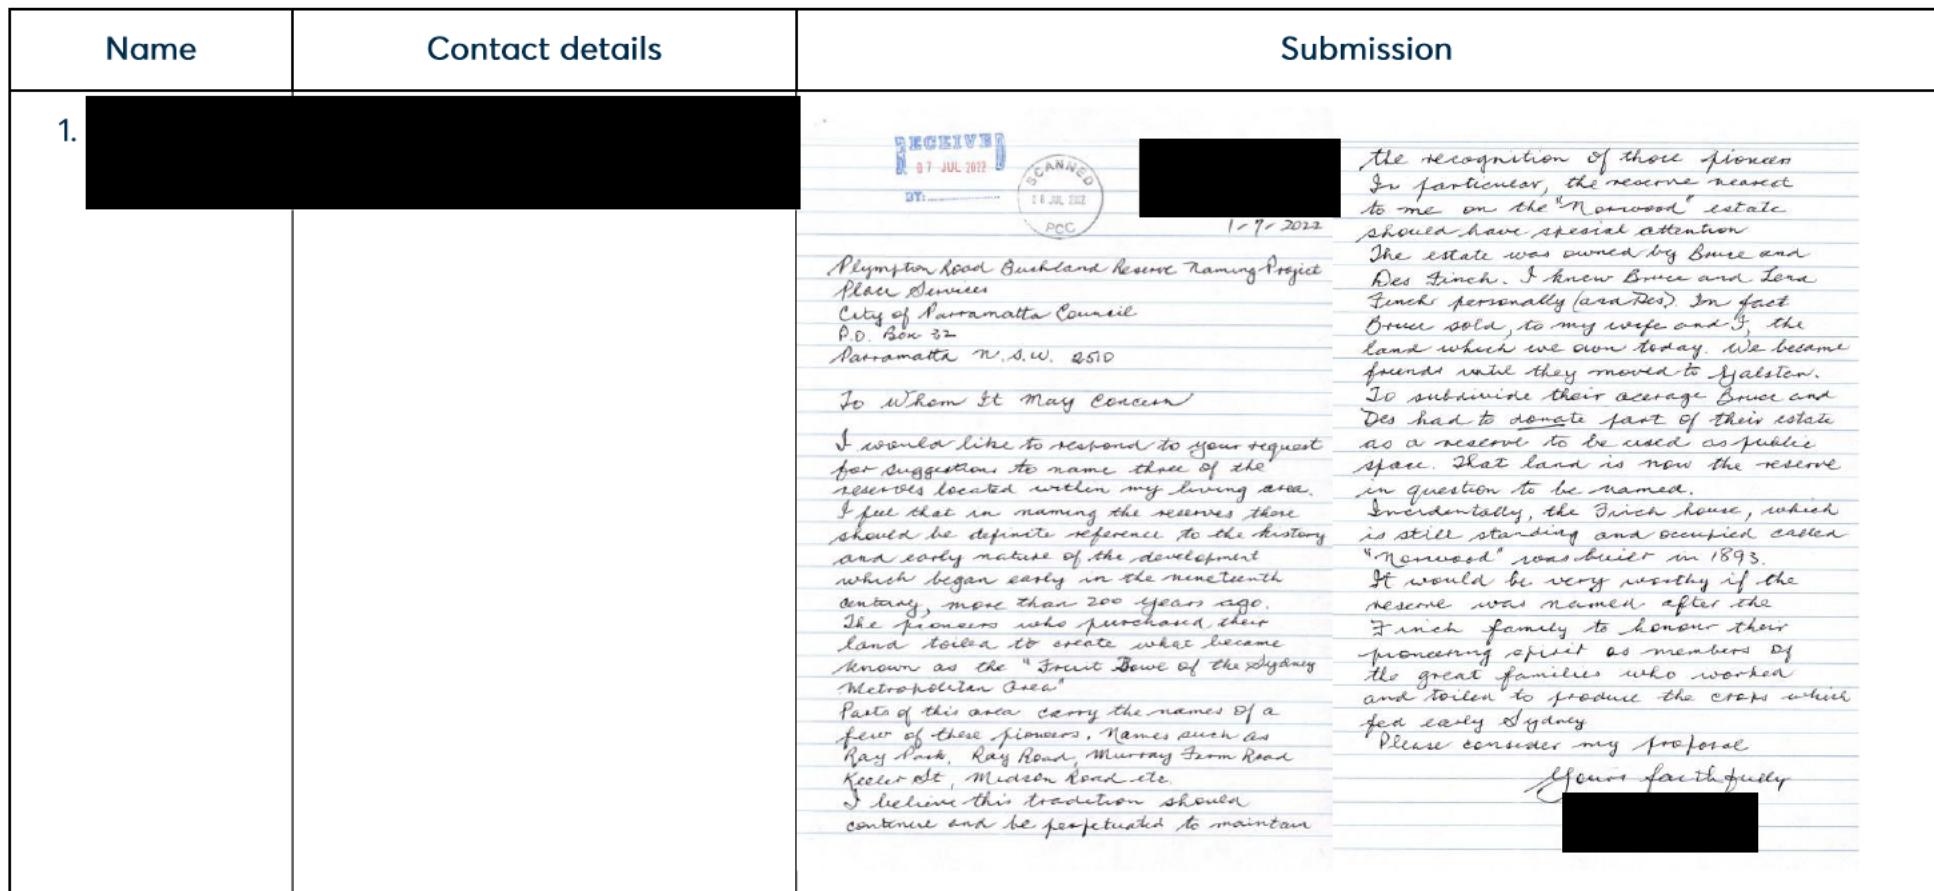 Name
Contact details
Submission
1.
RECEIVED
07 JUL 2022
BY:
SCANNED
JUL 2022
PCC
1-7-2022
Plympton Road Bushland Reserve Naming Project
Place Services
City of Parramatta Council
P.O. Box 32
Parramatta N.S.W. 2510
To Whom It May Concern
I would like to respond to your request
for suggestions to name three of the
reserves located within my living area.
I feel that in naming the reserves there
should be definite reference to the history
and early nature of the development
which began early in the nineteenth
century, more than 200 years ago.
The pioneers who purchased their
land toiled to create what became
known as the "Fruit Bowl of the Sydney
Metropolitan Area"
Parts of this area carry the names of a
few of these pioneers. Names such as
Ray Park, Ray Road, Murray Farm Road
Keeler St, Midson Road etc.
I believe this tradition should
continue and be perpetuated to maintain
the recognition of those pioneers
In particular, the reserve nearest
to me on the "Norwood" estate
should have special attention
The estate was owned by Bruce and
Des Finch. I knew Bruce and Lena
Finch personally (and Des). In fact
Bruce sold, to my wife and I, the
land which we own today. We became
friends until they moved to Galston.
To subdivide their acerage Bruce and
Des had to donate part of their estate
as a reserve to be used as public
space. That land is now the reserve
in question to be named.
Incidentally, the Finch house, which
is still standing and occupied called
"Norwood" was built in 1893.
It would be very worthy if the
reserve was named after the
Finch family to honour their
pioneering spirit as members of
the great families who worked
and toiled to produce the crops which
fed early Sydney
Please consider my proposal
Yours faithfully